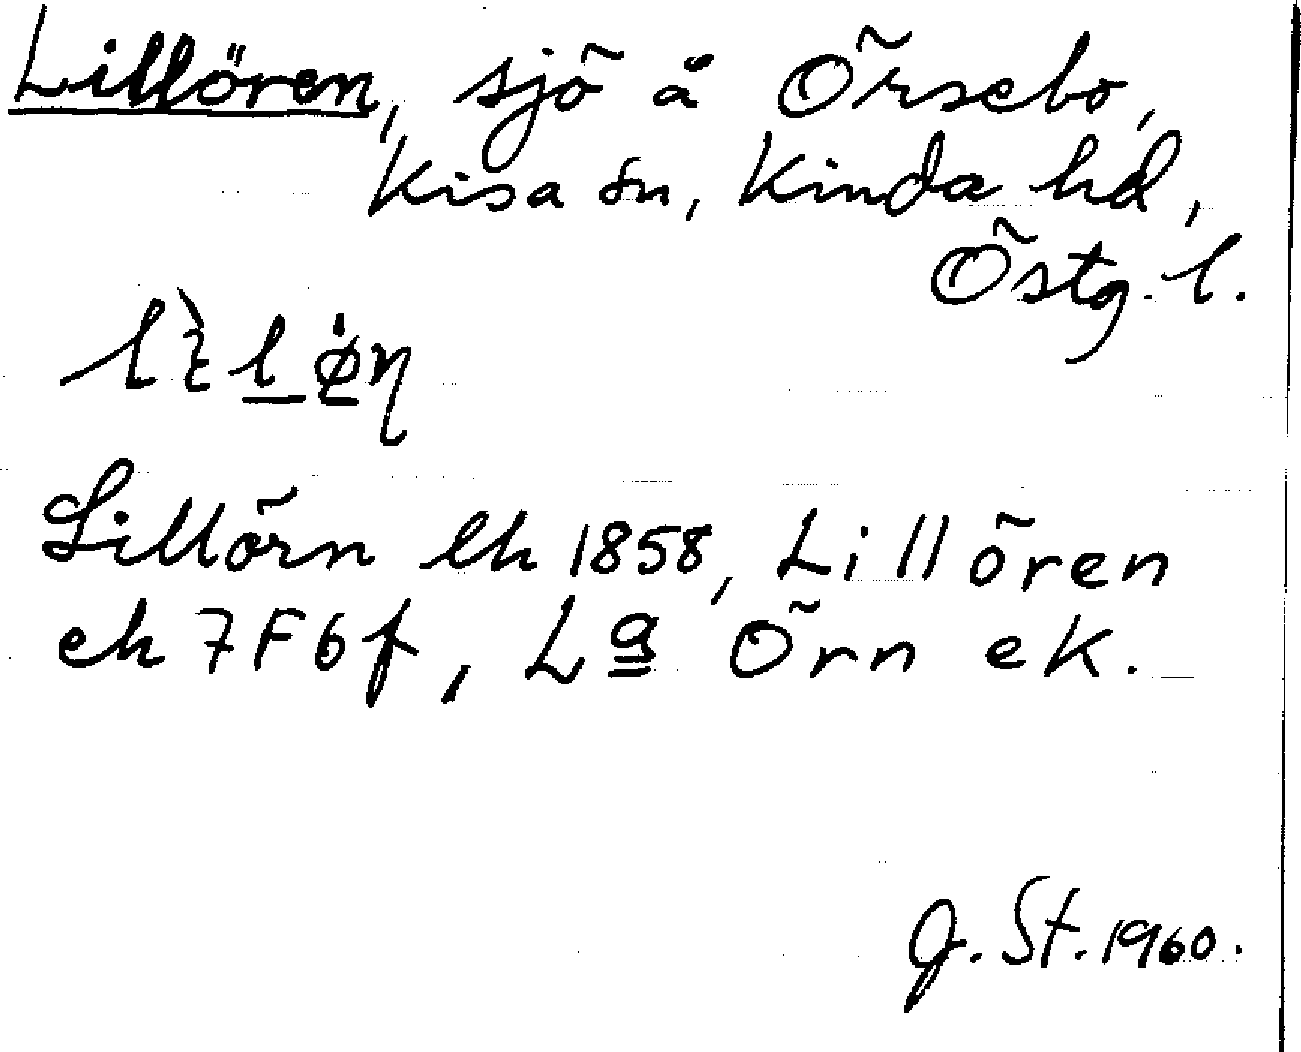 Lillören, sjö å Örsebo,
Kisa sn, Kinda hd,
Östg. l.
Lillörn lh 1858, Lillören
ek 7F6f, La Örn ek.
J. St. 1960.